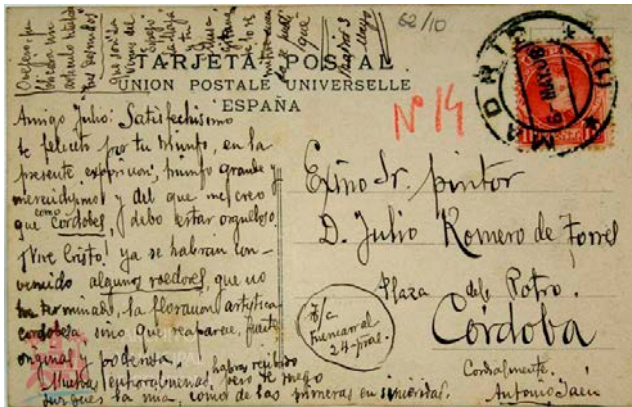 62/10
TARJETA POSTAL
UNION POSTALE UNIVERSELLE
ESPAÑA
Nº 14
MADRID
Amigo Julio: Satisfechisimo
te felicito por tu triunfo, en la
presente exposicion, triunfo grande y
merecidisimo y del que mejor creo
que como cordobes, debo estar orgulloso.
¡Vive Cristo! ya se habrán con-
vencido algunos roedores, que no
ha terminado, la floración artistica
cordobesa sino que reaparece, fuerte
original y poderosa.
Muchas enhorabuenas, habras recibido
pero te ruego
juzgues la mia, como de las primeras en sinceridad.
Cordialmente.
Antonio Jaén
Exmo Sr. pintor
D. Julio Romero de Torres
Plaza del Potro.
Córdoba
S/c
Fuencarral
24-pral.